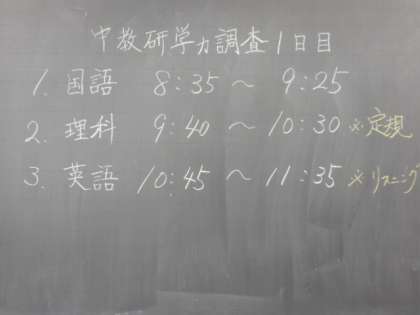 中教研学力調査1日目
1. 国語 8:35 ～ 9:25
2. 理科 9:40 ～ 10:30 ※定規
3. 英語 10:45 ～ 11:35 ※リスニング